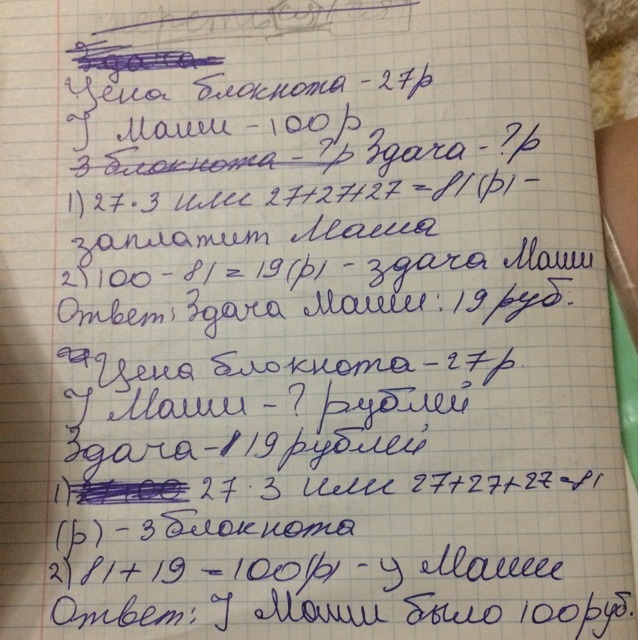 Здача
Цена блокнота - 27р
У Маши - 100р
3 блокнота - ?р Здача - ?р
1) 27 · 3 или 27+27+27 = 81 (р) -
заплатит Маша
2) 100 - 81 = 19 (р) - здача Маши
Ответ: Здача Маши: 19 руб.
Цена блокнота - 27р.
У Маши - ? рублей
Здача - 19 рублей
1) 27 · 3 или 27+27+27=81
(р) - 3 блокнота
2) 81 + 19 = 100 (р) - у Маши
Ответ: У Маши было 100 руб.